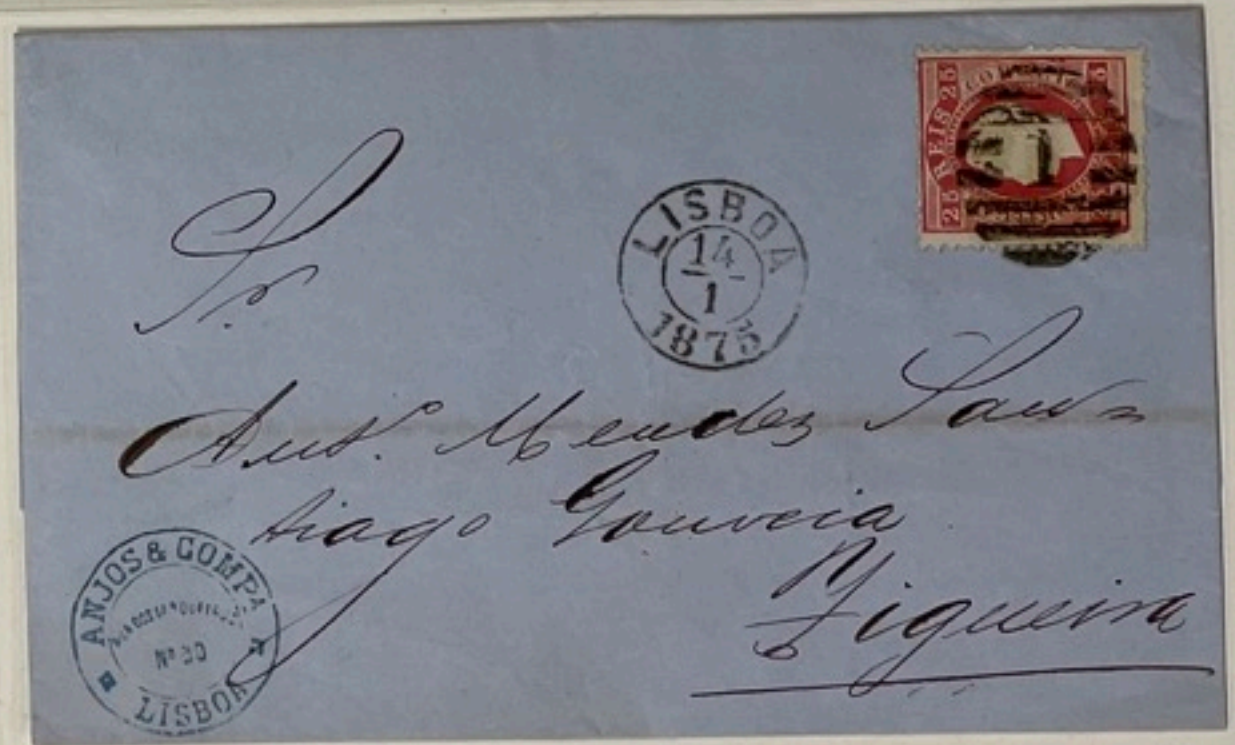 25 REIS 25
25
5
LISBOA
14
1
1875
Sr.
Ant. Mendes San=
tiago Gouveia
Figueira
ANJOS & COMPA
Nº 30
LISBOA